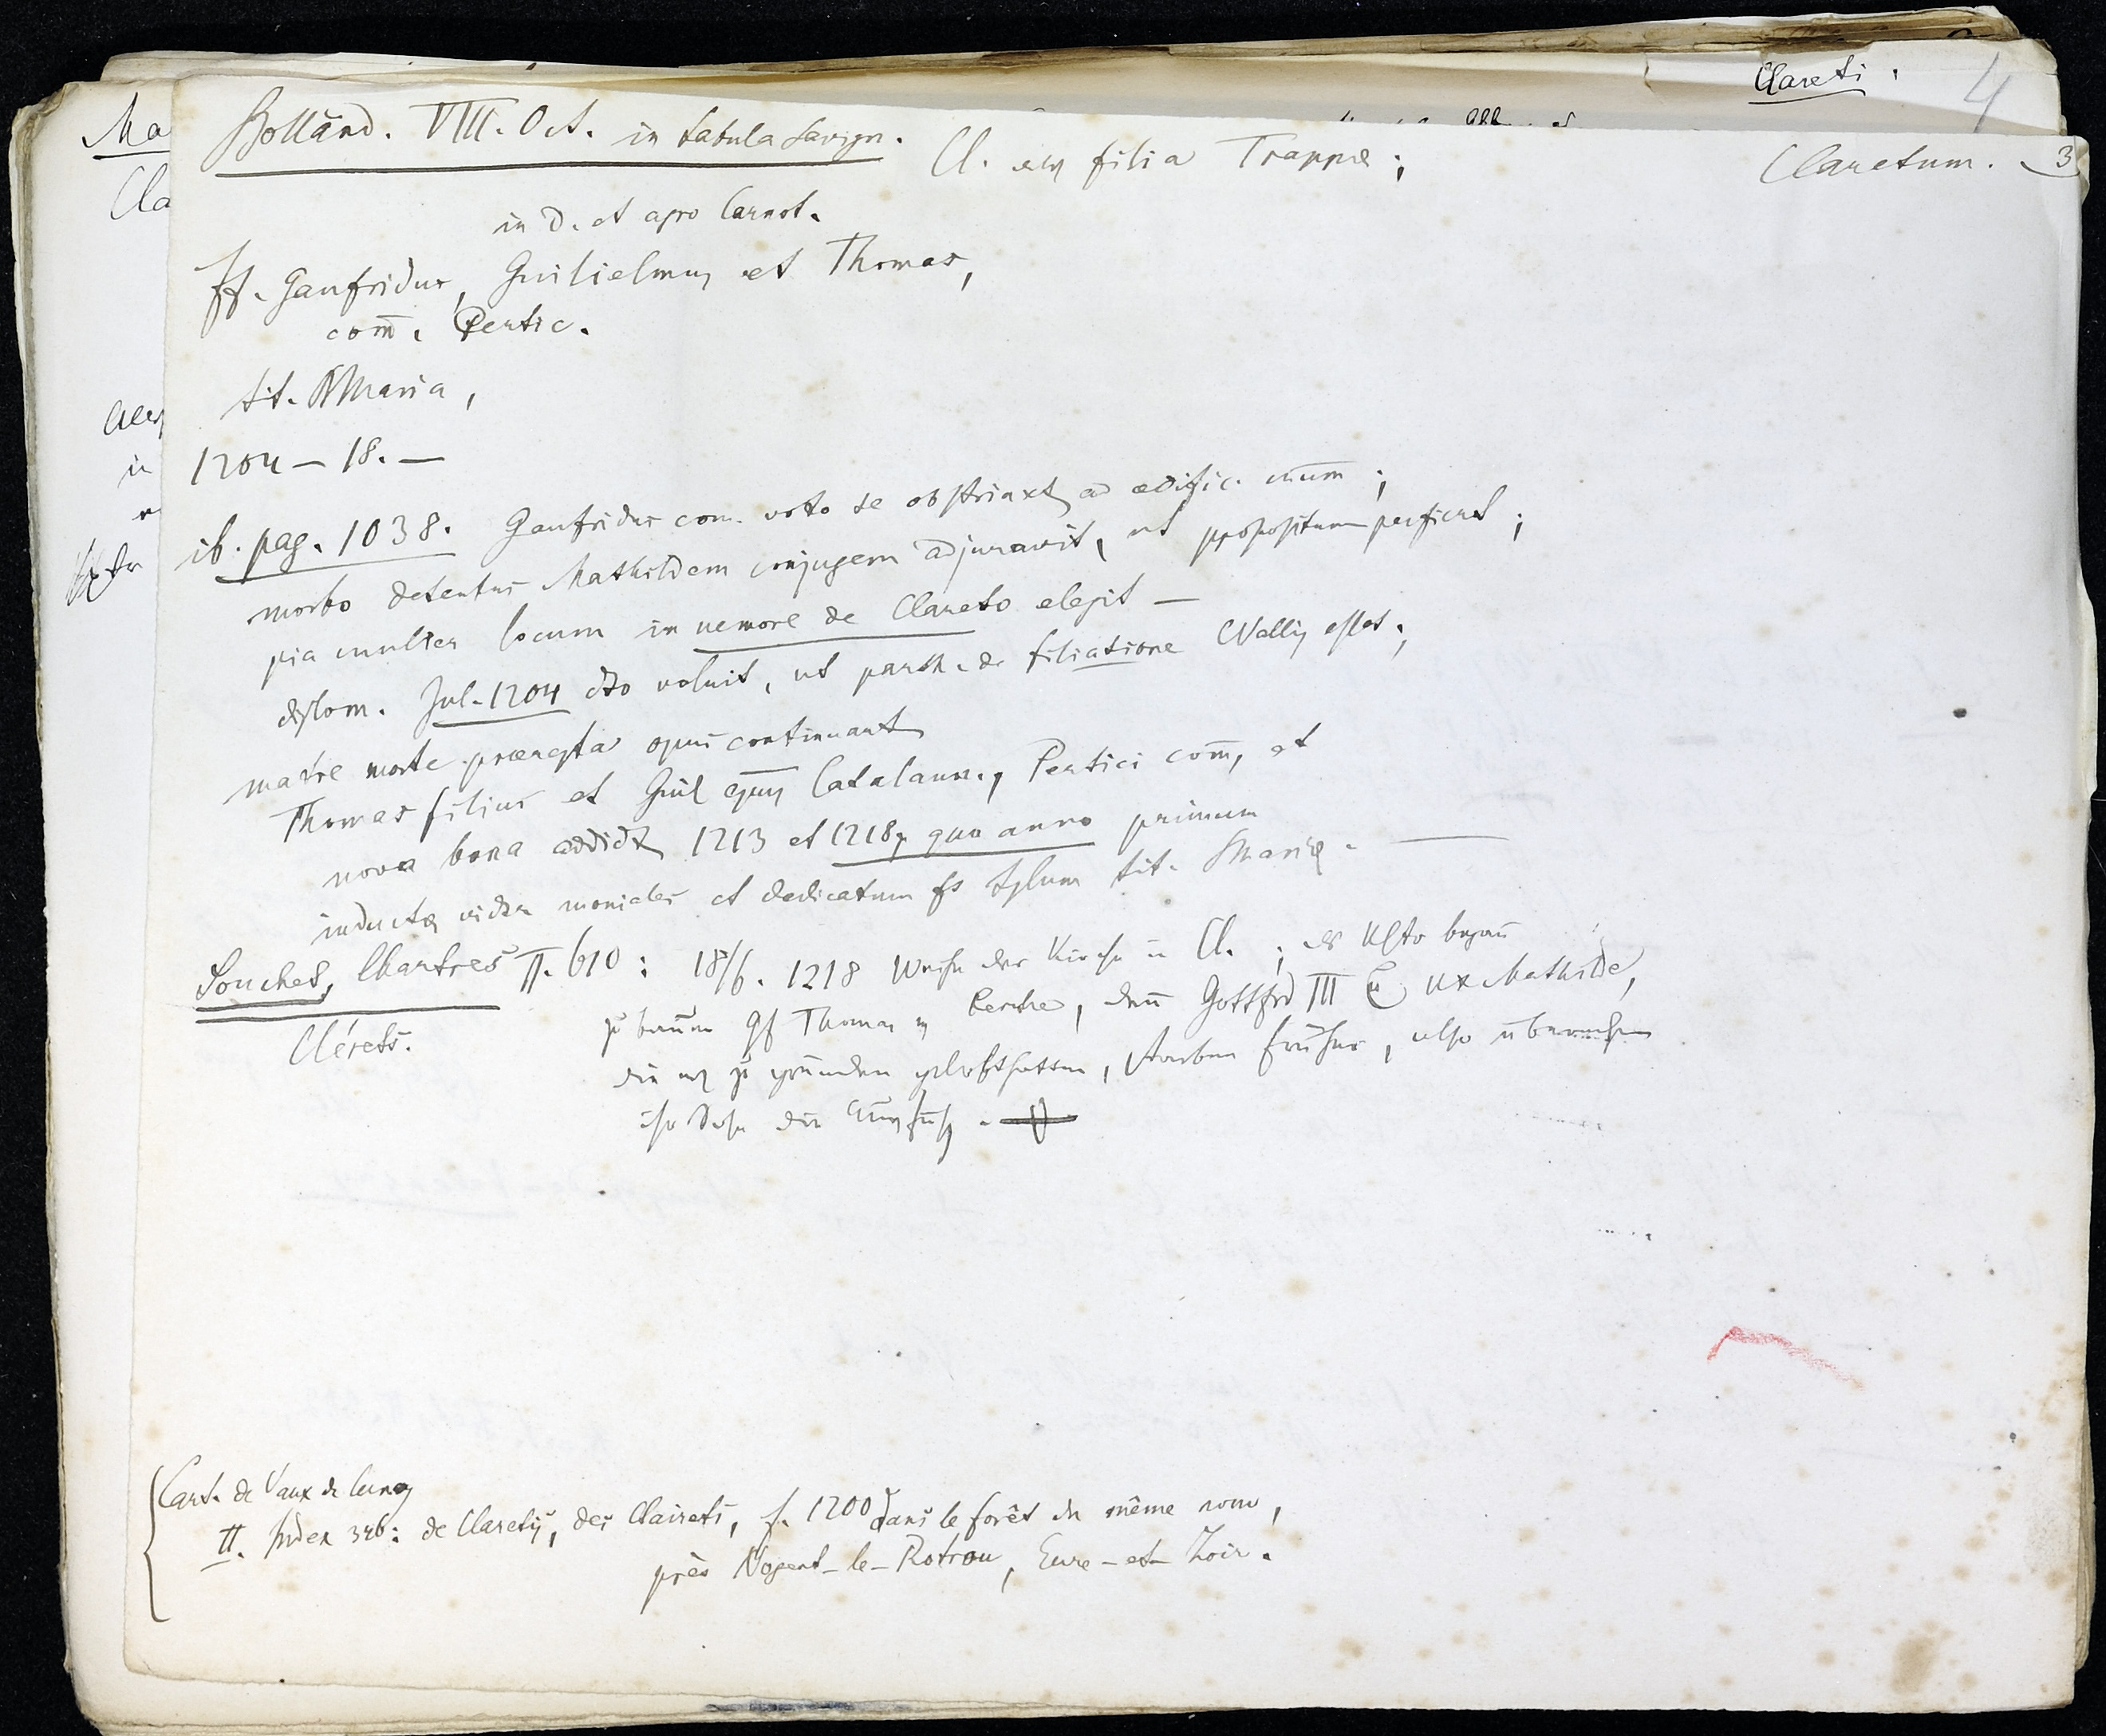 Clareti.
4
Claretum. 3
Bolland. VIII. Oct. in tabula Savign. Cl. filia Trappæ;
in D. et agro Carnot.
ff. Gaufridus, Guilielmus et Thomas,
com. Pertic.
tit. Maria,
1204 – 18. –
ib. pag. 1038. Gaufridus com. voto se obstrinxt ad ædific. mum;
morbo detentus Mathildem conjugem adjuravit, ut propositum perficeret;
pia mulier locum in nemore de Clareto elegit –
diplom. Jul. 1204 dto voluit, ut parth. de filiatione Vallis esset;
matre morte prærepta opus continuant
Thomas filius et Guil epus Catalaun., Pertici com, et
nova bona addidt 1213 et 1218, quo anno primum
inductæ moniales et dedicatum tplum tit. Mariæ. –
Souchet, Chartres II. 610: 18/6. 1218 Weihe der Kirche in Cl.; das Klstr began
Clérets.
zu bauen Gf Thomas v Perche, denn Gottfrd III u ux Mathilde,
die es zu gründen gelobt hatten, starben früher, also
ihr Sohn die
Cart. de Vaux de Cernay
II. Index 346: de Claretis, des Clairets, f. 1200 dans le forêt du même nom,
près Nogent-le-Rotrou, Eure-et-Loir.
Ma
Cla
in